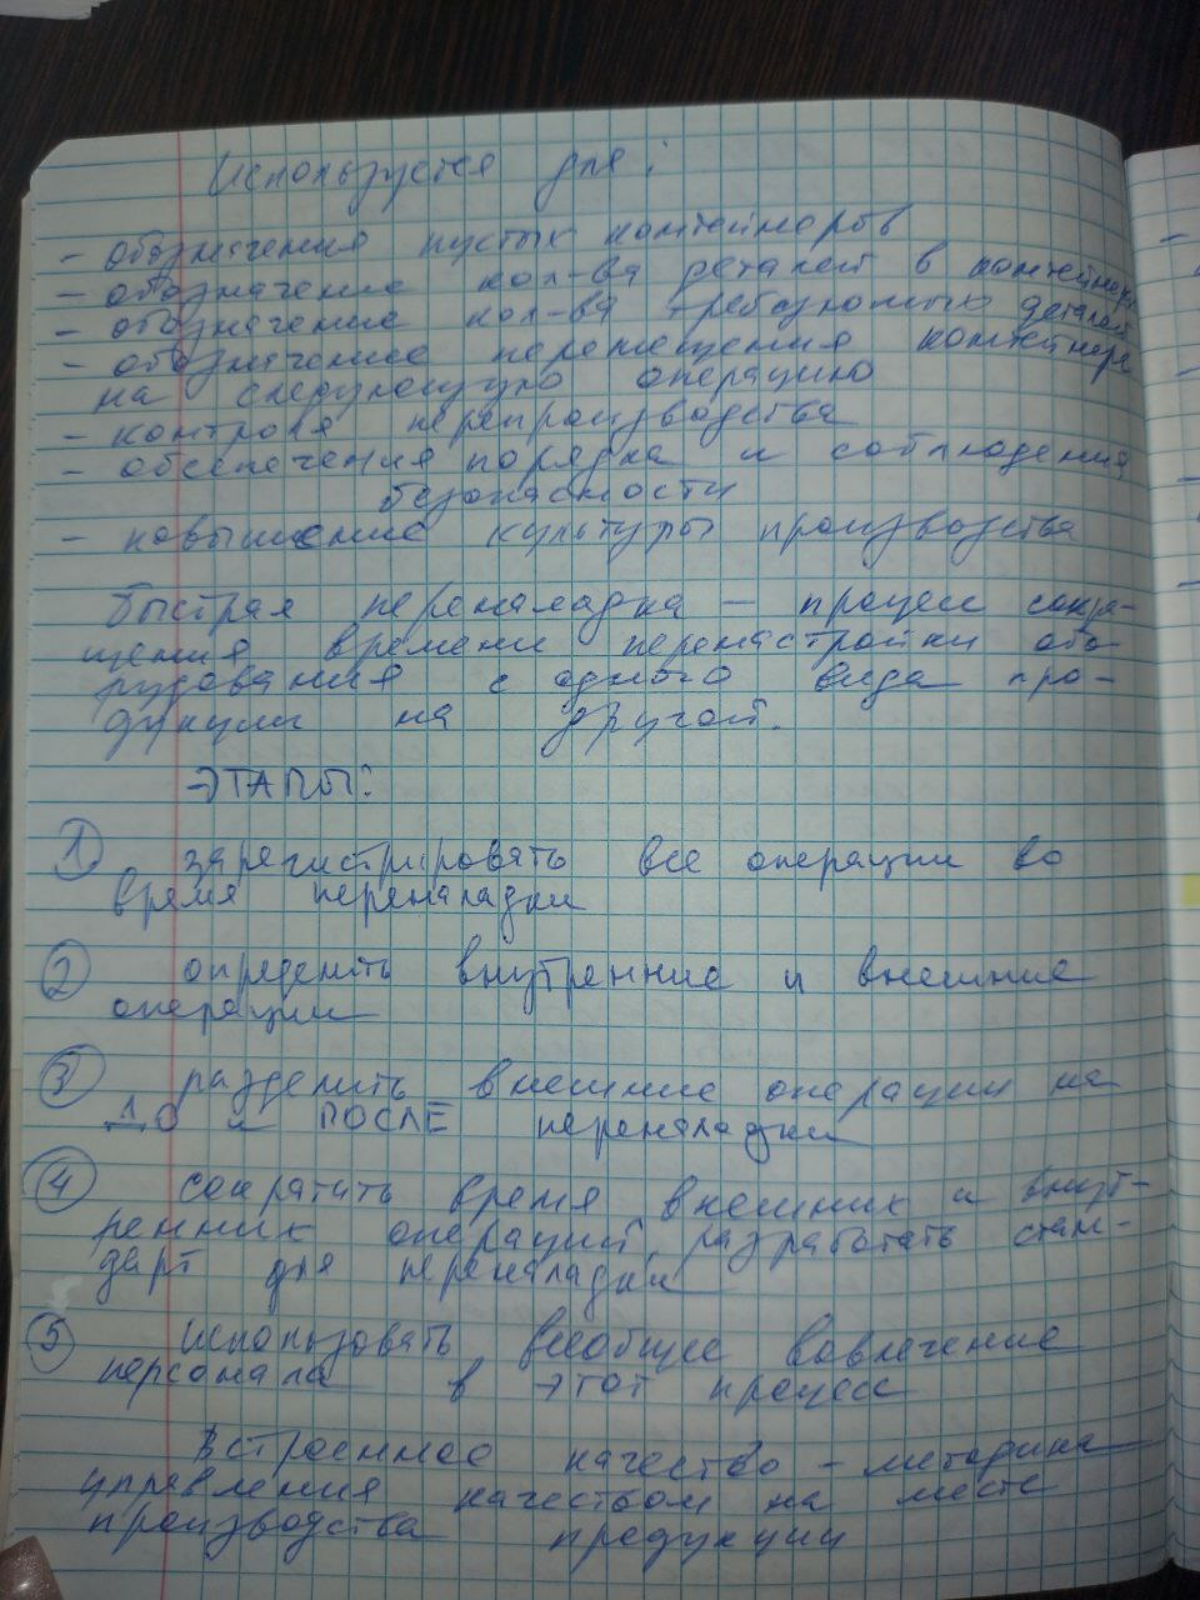 Используется для:
- обозначения пустых контейнеров
- обозначение кол-ва деталей в контейнере
- обозначение кол-ва требуемых деталей
- обозначение перемещения контейнера
на следующую операцию
- контроля перепроизводства
- обеспечения порядка и соблюдения
безопасности
- повышение культуры производства
Быстрая переналадка – процесс сокра-
щения времени перенастройки обо
рудования с одного вида про-
дукции на другой.
ЭТАПЫ:
1 зарегистрировать все операции во
время переналадки
2 определить внутренние и внешние
операции
3 разделить внешние операции на
ДО и ПОСЛЕ переналадки
4 сократить время внешних и внут-
ренних операций, разработать стан-
дарт для переналадки
5 использовать всеобщее вовлечение
персонала в этот процесс
Встроенное качество – методика
управления качеством на месте
производства продукции